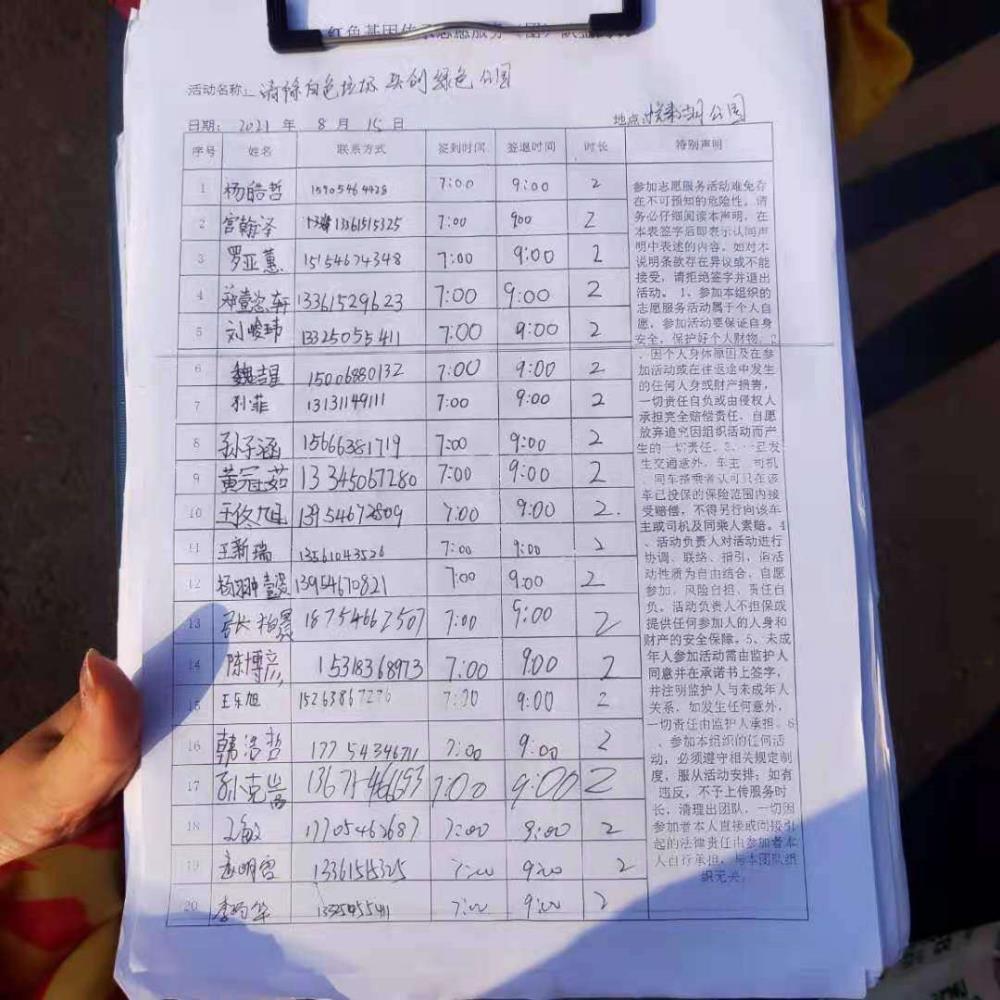 红色基因传承志愿服务（团）队
活动名称：清除白色垃圾 共创绿色公园
日期：2021 年 8 月 15 日 地点：悦来湖公园
序号 姓名 联系方式 签到时间 签退时间 时长 特别声明
1 杨皓哲 15905464428 7:00 9:00 2
2 宫翰泽 13361515325 7:00 900 2
3 罗亚蕙 15154674348 7:00 9:00 2
4 轩 13361529623 7:00 9:00 2
5 刘峻玮 13325055411 7:00 9:00 2
6 魏吉星 15006880132 7:00 9:00 2
7 孙菲 13131149111 7:00 9:00 2
8 孙子涵 15666381719 7:00 9:00 2
9 黄冠茹 13345067280 7:00 9:00 2
10 王佟旭 13954672809 7:00 9:00 2.
11 王新瑞 13561043526 7:00 9:00 2
12 杨翀 13954670821 7:00 9:00 2
13 张 18754662507 7:00 9:00 2
14 陈博彦 15318368973 7:00 900 2
15 王乐旭 15263867276 7:00 9:00 2
16 韩浩哲 17754346711 7:00 9:00 2
17 孙克 13675466693 7:00 9:00 2
18 敏 17705462687 7:00 9:00 2
19 明 13361515325 7:00 9:00 2
20 李 13325455411 7:00 9:00 2
参加志愿服务活动难免存
在不可预知的危险性。请
务必仔细阅读本声明，在
本表签字后即表示认同声
明中表述的内容。如对本
说明条款存在异议或不能
接受，请拒绝签字并退出
活动。 1、参加本组织的
志愿服务活动属于个人自
愿，参加活动要保证自身
安全，保护好个人财物。2
、因个人身体原因及在参
加活动或在往返途中发生
的任何人身或财产损害，
一切责任自负或由侵权人
承担完全赔偿责任，自愿
放弃追究因组织活动而产
生的一切责任。3、一旦发
生交通意外，车主、司机
、同车搭乘者认可只在该
车已投保的保险范围内接
受赔偿，不得另行向该车
主或司机及同乘人索赔。4
、活动负责人对活动进行
协调、联络、指引，该活
动性质为自由结合、自愿
参加、风险自担、责任自
负。活动负责人不担保或
提供任何参加人的人身和
财产的安全保障。5、未成
年人参加活动需由监护人
同意并在承诺书上签字，
并注明监护人与未成年人
关系，如发生任何意外，
一切责任由监护人承担。6
、参加本组织的任何活
动，必须遵守相关规定制
度，服从活动安排；如有
违反，不予上传服务时
长，清理出团队，一切因
参加者本人直接或间接引
起的法律责任由参加者本
人自行承担，与本团队组
织无关。